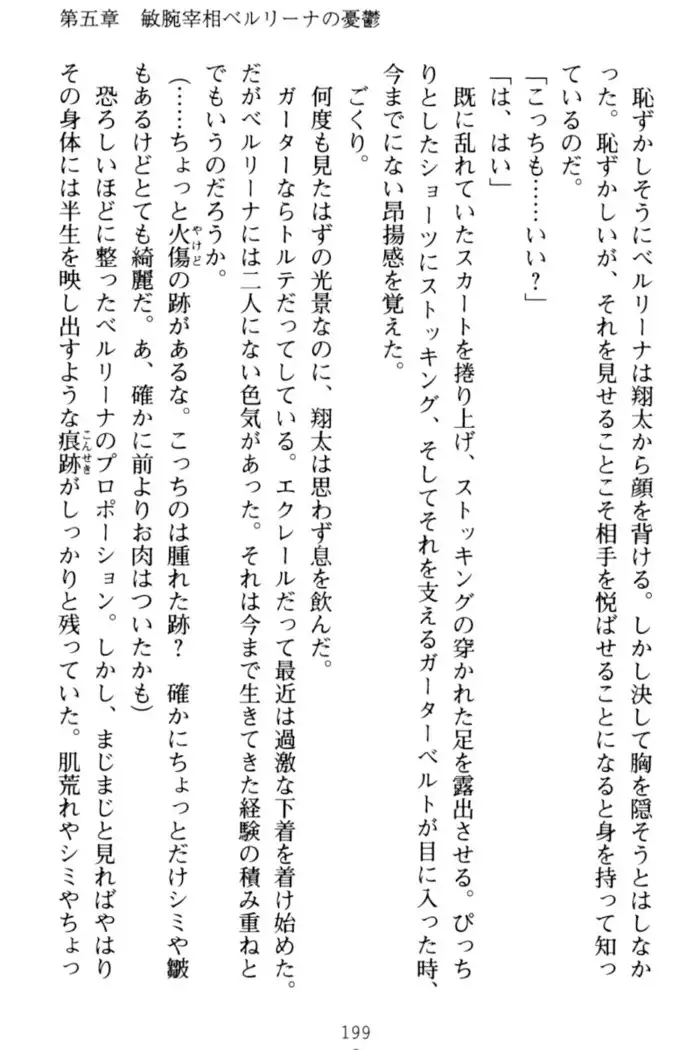 第五章　敏腕宰相ベルリーナの憂鬱
　恥ずかしそうにベルリーナは翔太から顔を背ける。しかし決して胸を隠そうとはしなか
った。恥ずかしいが、それを見せることこそ相手を悦ばせることになると身を持って知っ
ているのだ。
「こっちも……いい？」
「は、はい」
　既に乱れていたスカートを捲り上げ、ストッキングの穿かれた足を露出させる。ぴっち
りとしたショーツにストッキング、そしてそれを支えるガーターベルトが目に入った時、
今までにない昂揚感を覚えた。
　ごくり。
　何度も見たはずの光景なのに、翔太は思わず息を飲んだ。
　ガーターならトルテだってしている。エクレールだって最近は過激な下着を着け始めた。
だがベルリーナには二人にない色気があった。それは今まで生きてきた経験の積み重ねと
でもいうのだろうか。
（……ちょっと火傷やけどの跡があるな。こっちのは腫れた跡？　確かにちょっとだけシミや皺
もあるけどとても綺麗だ。あ、確かに前よりお肉はついたかも）
　恐ろしいほどに整ったベルリーナのプロポーション。しかし、まじまじと見ればやはり
その身体には半生を映し出すような痕跡こんせきがしっかりと残っていた。肌荒れやシミやちょっ
199